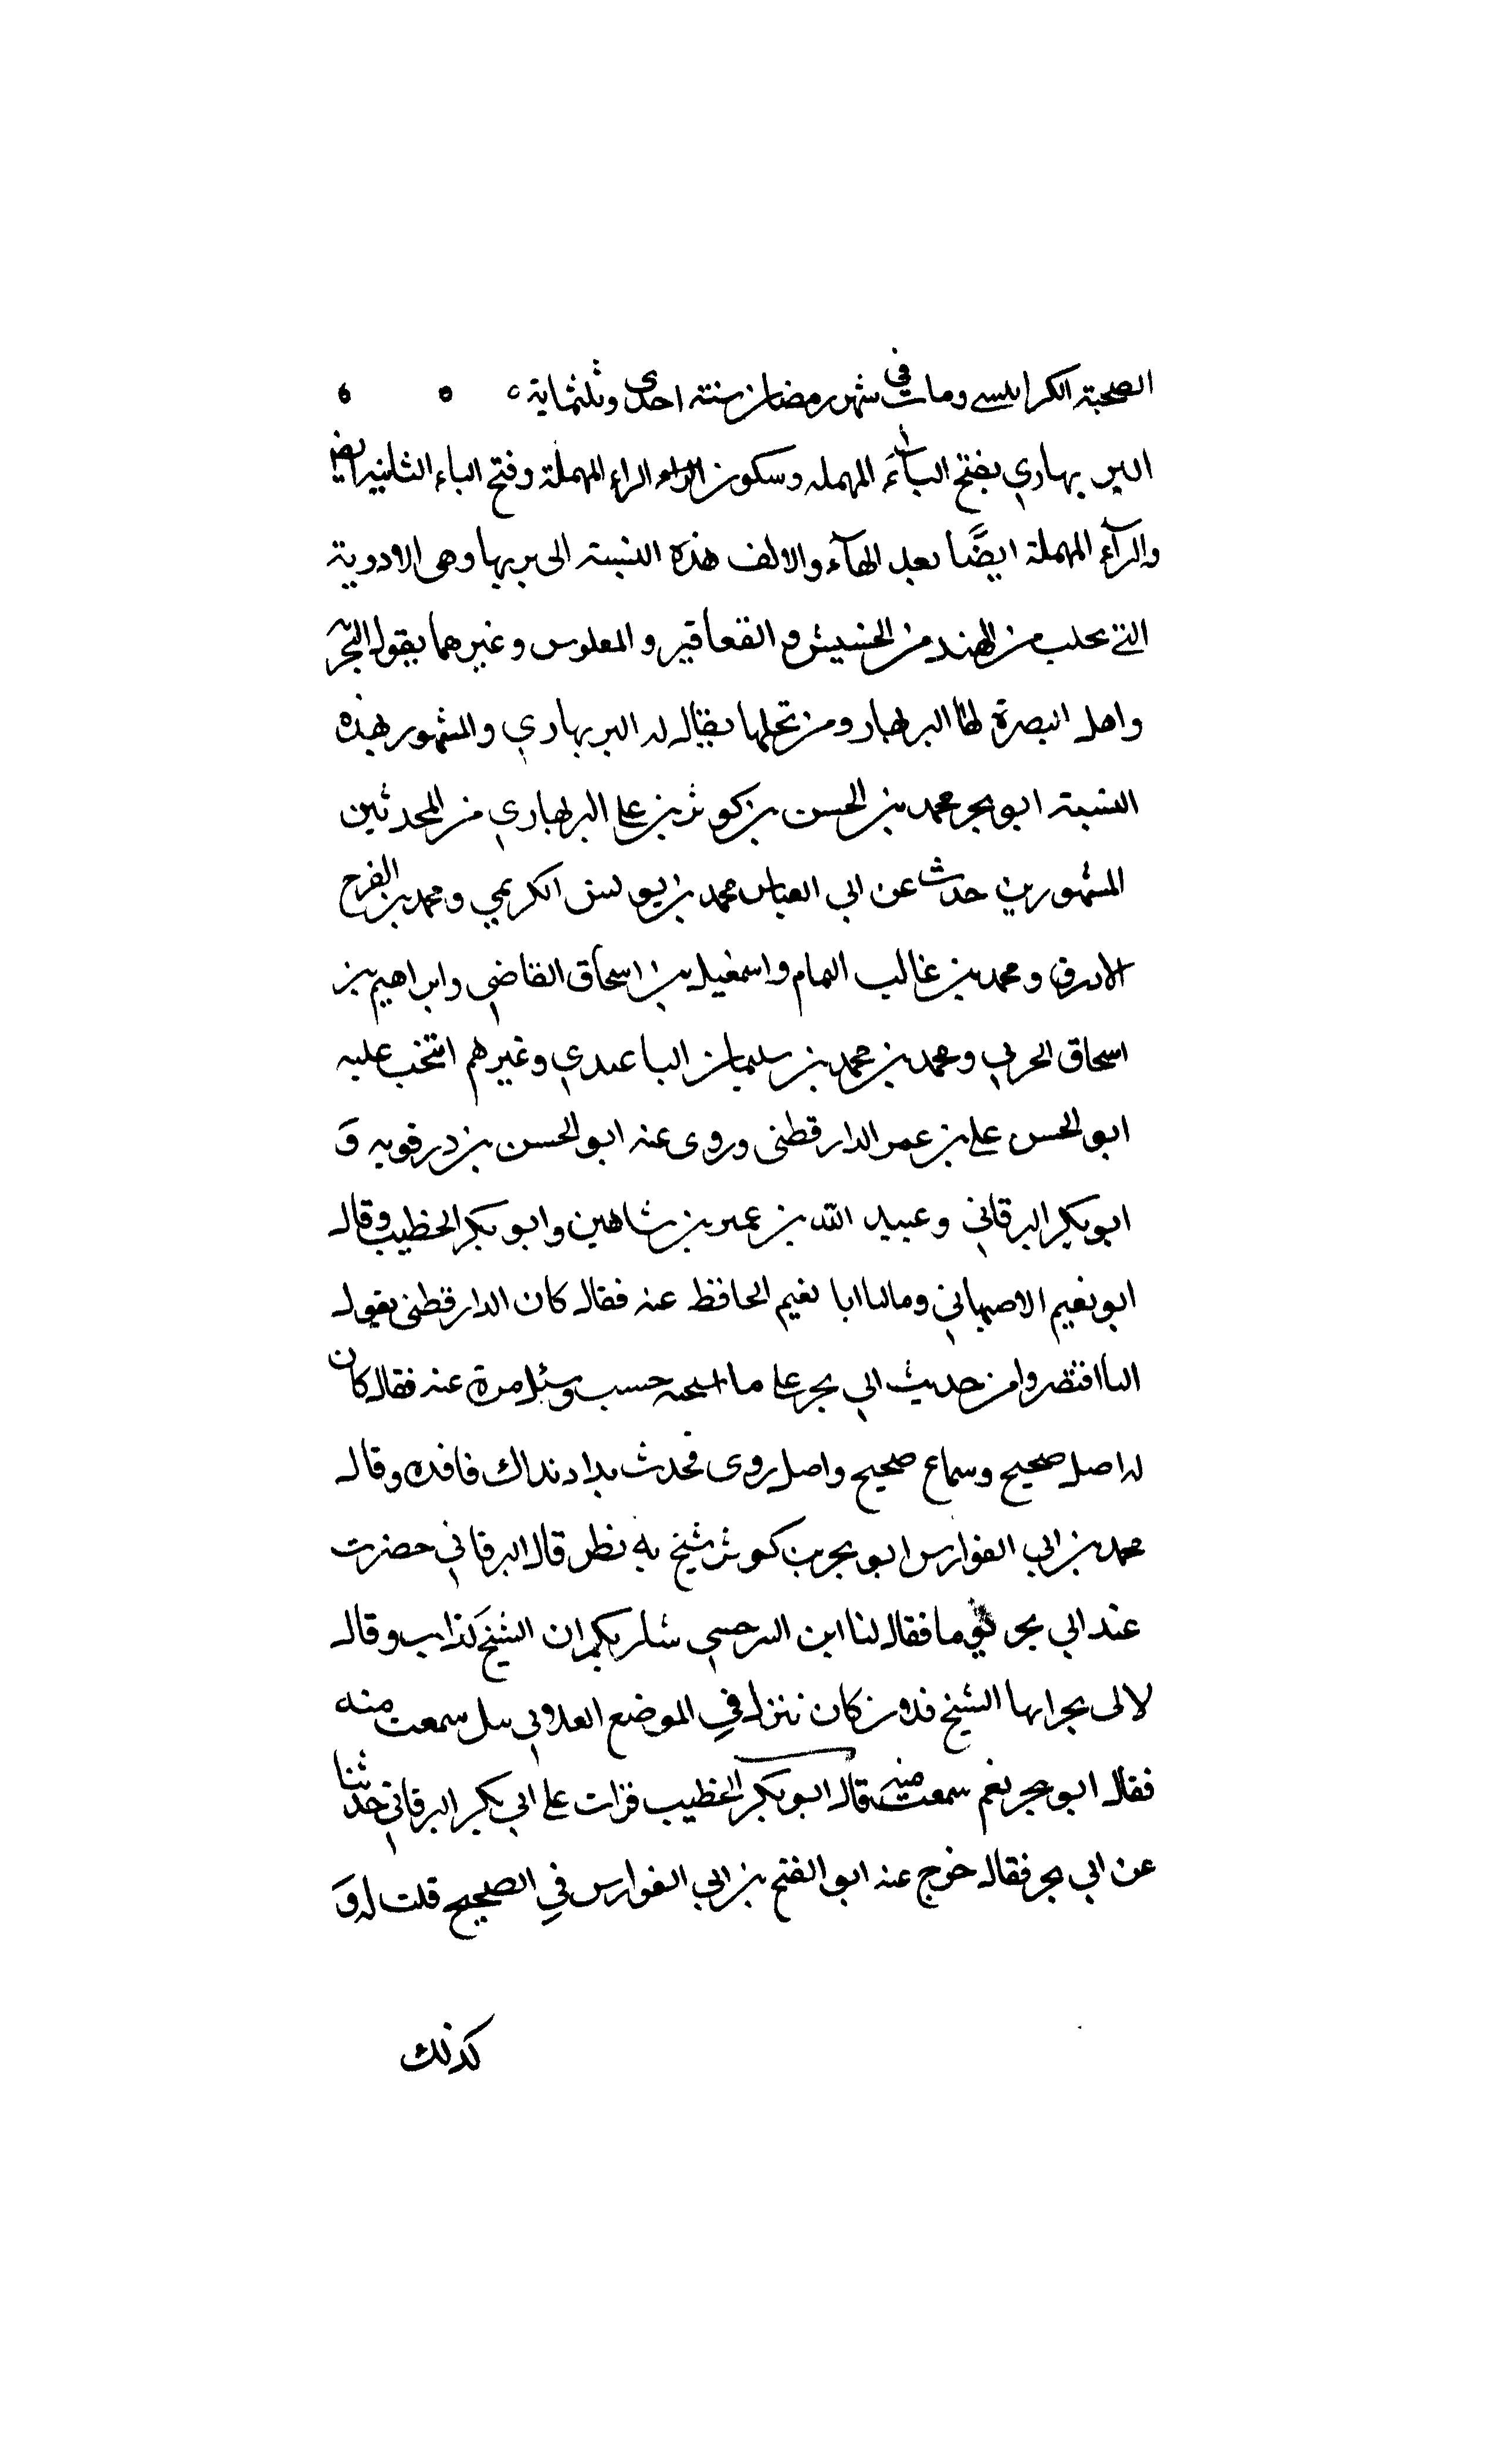 الصحبة الكرابيسي ومات في شهر رمضان سنة احدى وثلثماية
البربهاري بفتح الباء المهمله وسكون الراء المهملة وفتح الباء الثانيه ايضا
والرآء المهملة ايضًا بعد الهآء والالف هذه النسبة الى بربهار وهى الادوية
التي تجلب من الهند من الحشيش و القعاقير و المعلوس وغيرهما يقول البحر
واهل البصرة لها البربهار ومن تجلبها يقال له البربهاري والمشهور بهذه
النسبة ابو بحر محمد بن الحسن بن كوثر بن على البربهاري من المحدثين
المشهورين حدث عن ابي العباس محمد بن يونس الكريمي ومحمد بن الفرح
الازرق ومحمد بن غالب التمام واسمعيل بن اسحاق القاضي وابراهيم بن
اسحاق الحربي ومحمد بن محمد بن سليمان الباغندي وغيرهم انتخب عليه
ابو الحسن على بن عمر الدارقطنى وروى عنه ابو الحسن بن رزقويه و
ابوبكر البرقاني وعبيد الله بن عمر بن شاهين وابو بكر الخطيب وقال
ابو نعيم الاصبهاني وسالنا ابا نعيم الحافظ عنه فقال كان الدارقطنى يقول
لنا اقتصروا من حديث ابي بحر على ما انتخبته حسب وسئل مرة عنه فقال كان
له اصل صحيح وسماع صحيح واصل روى فحدث بدا وبذاك فافده وقال
محمد بن ابي الفوارس ابو بحر بن كوثر شيخ به نظر قال البرقاني حضرت
عند ابي بحر يوما فقال لنا ابن السرخسي سلريكم ان الشيخ كذاب وقال
لابى بحر ايها الشيخ فلان بن كان ننزل في الموضع الفلاني هل سمعت منه
فقال ابو بحر نعم سمعت منه قال ابوبكر الخطيب قرات على ابي بكر البرقاني حدثنا
عن ابي بحر فقال خرج عنه ابو الفتح بن ابي الفوارس في الصحيح قلت له و
كذلك